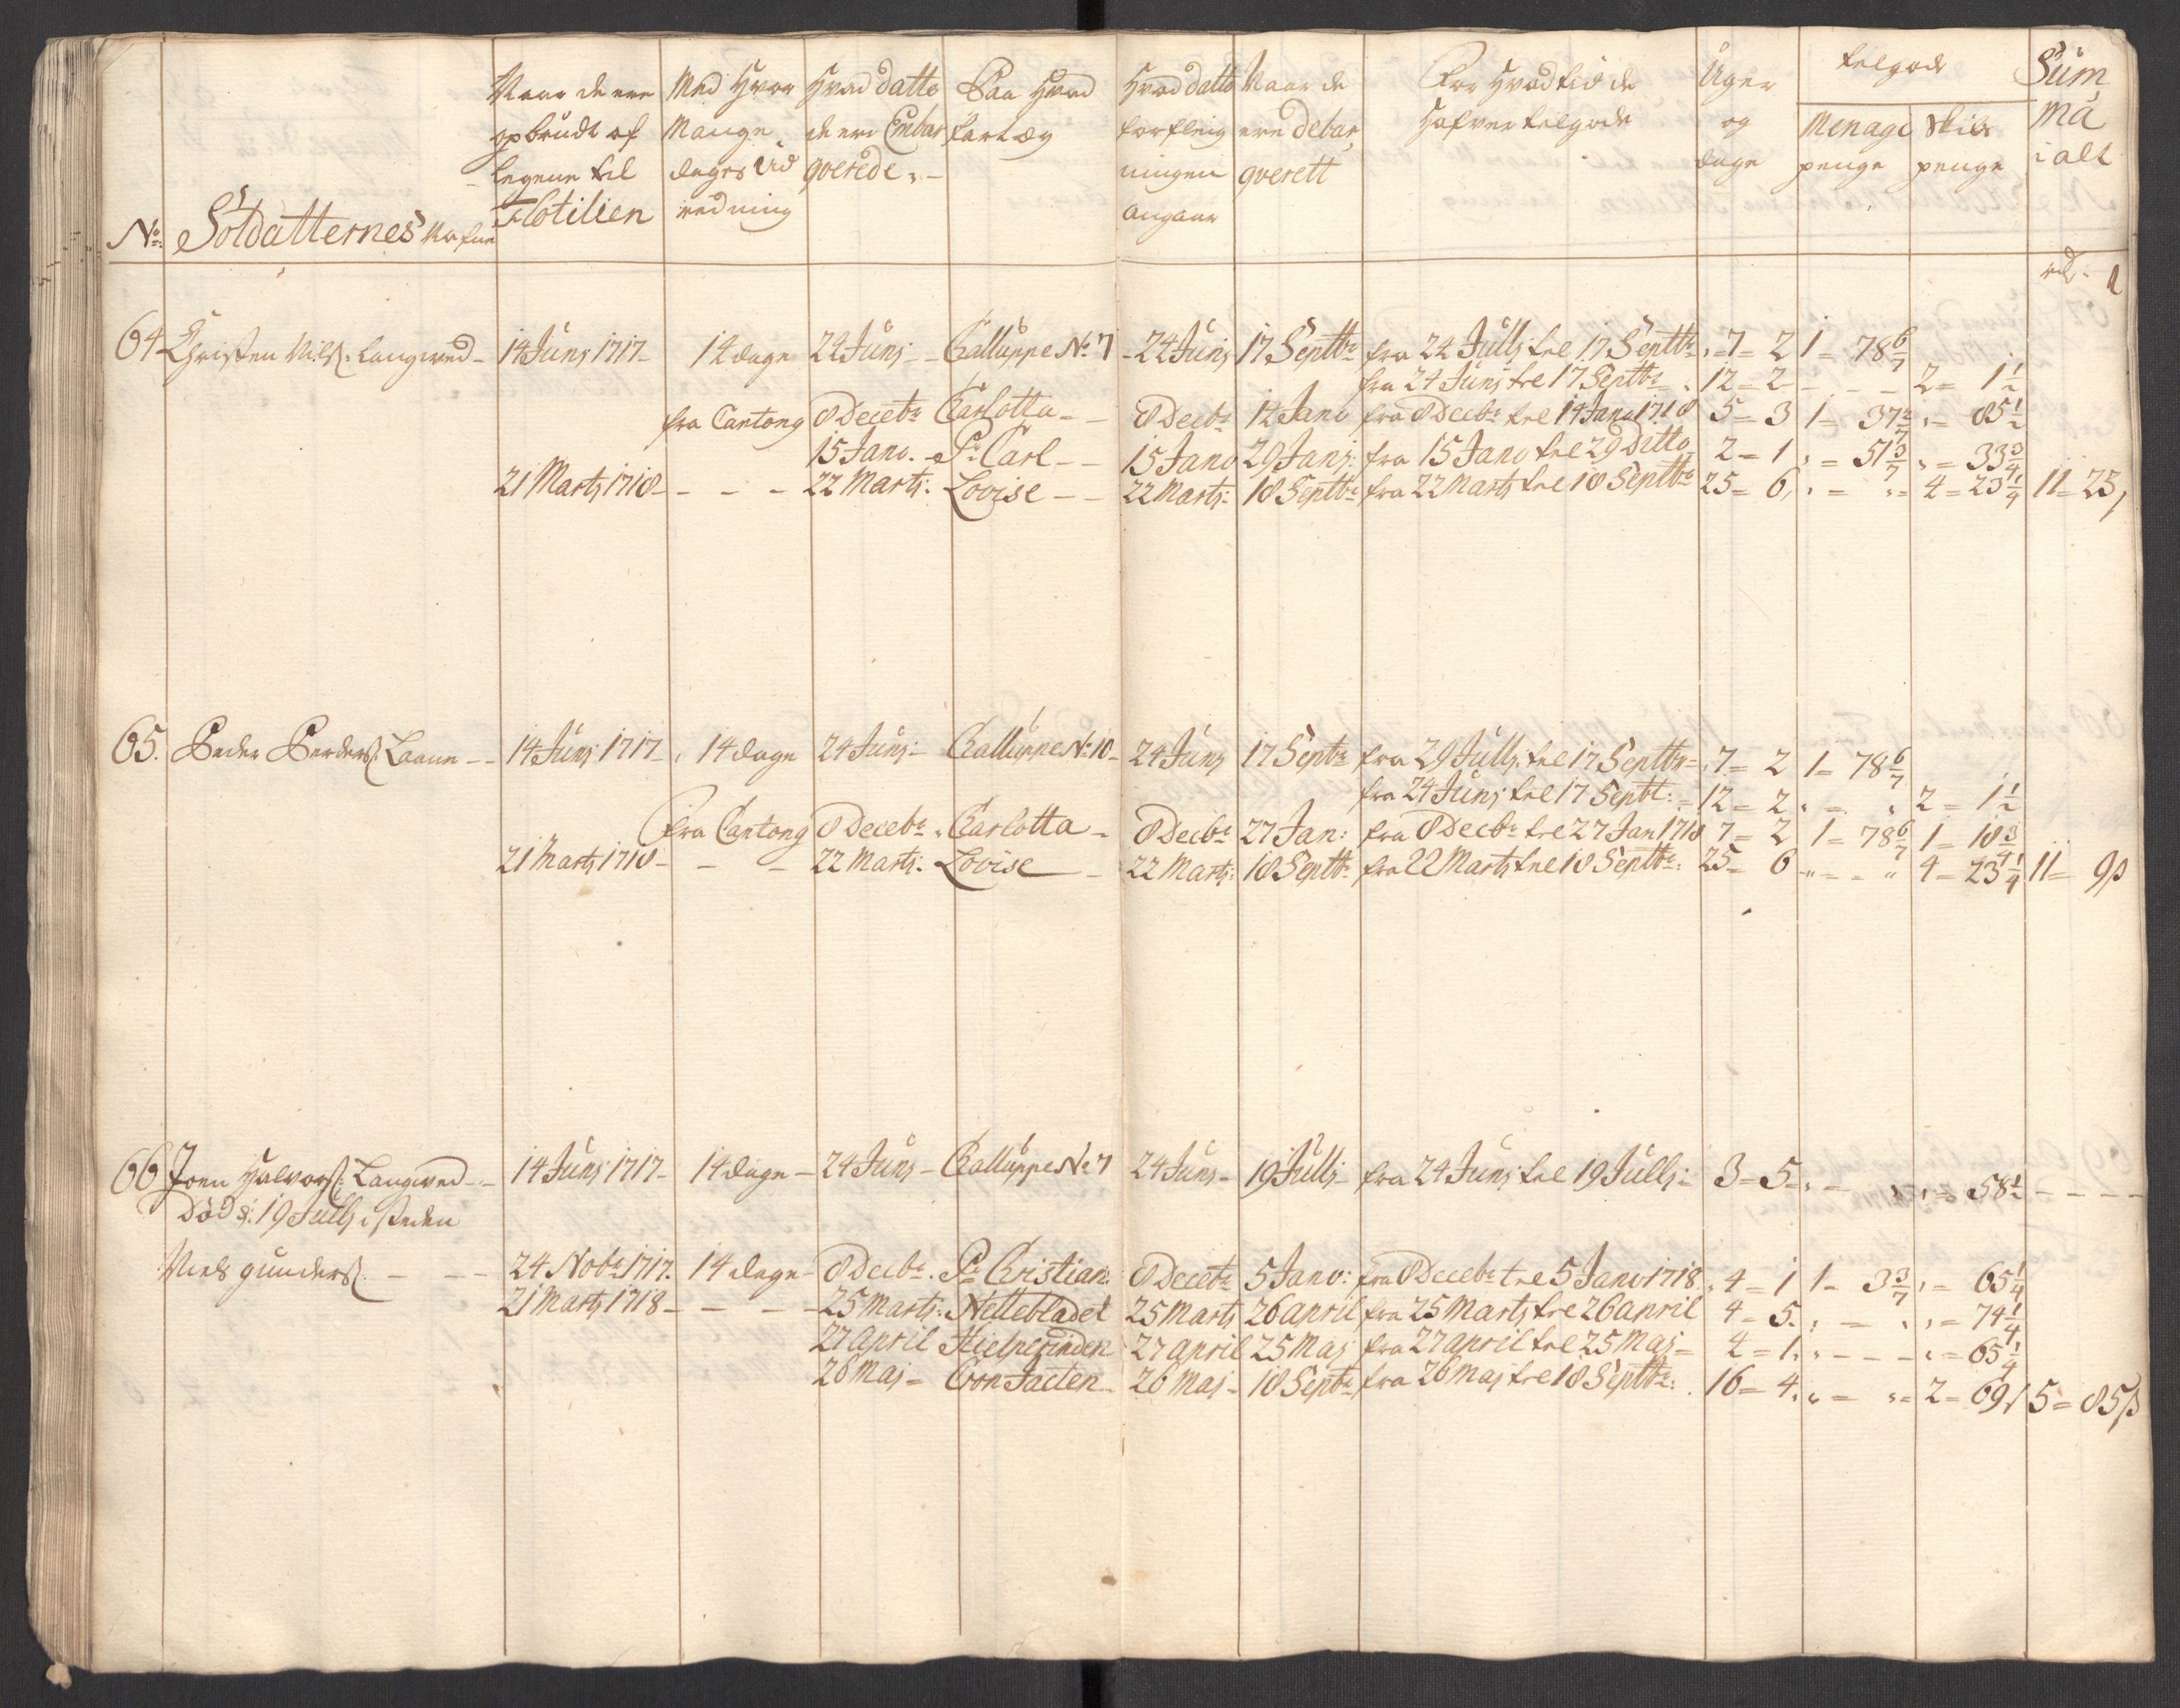 No: Soldatternes Nafne
Naar de ere opbrudt af Legene til Flotilien
Med Hvor Mange dages Udredning
Hvad datto de ere Embarqverede
Paa Hvad fartøy
Hvad datto forfleigningen angaar
Naar de ere debarqverett
For Hvad tid de Hafver tilgode
Uger og dage
tilgode
Menage penge
Skibs penge
Summa i alt
rd: ß
64 Christen Nilß: Langwed - 14 Junj 1717 - 14 dage 24 Junj - Challuppe No 7 - 24 Junj 17 Septbr fra 24 Julij til 17 Septbr 7 = 2 1 = 78 6/7
fra 24 Junj til 17 Septbr 12 = 2 - - - 2 = 1 1/2
fra Cantong 8 Decebr Carlotta - 8 Decbr 14 Jano fra 8 Decbr til 14 Jano 1718 5 = 3 1 = 37 2/7 „ = 85 1/2
15 Jano. - Pr: Carl - 15 Jano 29 Janj: fra 15 Jano til 29 Ditto 2 = 1 „ = 51 3/7 „ = 33 3/4
21 Martj 1718 - - - 22 Martj: Lovise - - 22 Martj: 18 Septbr fra 22 Martj til 18 Septbr 25 = 6 „ = „ = 4 = 23 1/4 11 = 23
65. Peder Pederß: Laane - - 14 Junj 1717 - 14 dage 24 Junj - Challuppe No 10 - 24 Junj 17 Septbr fra 29 Julij til 17 Septbr = 7 = 2 1 = 78 6/7
fra 24 Junj til 17 Septbr: = 12 = 2 „ = „ 2 = 1 1/2
Fra Cantong 8 Decebr. Carlotta - 8 Decbr 27 Jan: fra 8 Decbr til 27 Jan 1718 7 = 2 1 = 78 6/7 1 = 18 3/4
21 Martj 1718 - - - 22 Martj: Lovise - 22 Martj: 18 Septbr fra 22 Martj til 18 Septbr: 25 = 6 „ = = „ 4 = 23 1/4 11 = 9ß
66 Joen Halvorß: Langwed - 14 Junj 1717 - 14 dage - 24 Junj - Challuppe No 7 24 Junj - 19 Julij - fra 24 Junj til 19 Julij: 3 = 5 - „ = „ „ = 58 1/2 - - - -
Död d: 19 Julij i steden
Niels gunderß. - - - 24 Nobr 1717. 14 dage - 8 Decbr. Pr Christian. 8 Decebr 5 Jano: fra 8 Decebr til 5 Jano 1718. 4 = 1 1 = 3 3/7 „ = 65 1/4
21 Martj 1718 - - - - 25 Martj: Nettebladet 25 Martj 26 april fra 25 Martj til 26 april 4 = 5. „ = „ „ = 74 1/4
27 april Hielperinden 27 april 25 Maj fra 27 april til 25 Maj - 4 = 1. „ - - - „ = 65 1/4
26 Maj - 26 Maj - 18 Septbr fra 26 Maj til 18 Septbr: 16 = 4. „ = „ = 2 = 69 5 = 85ß